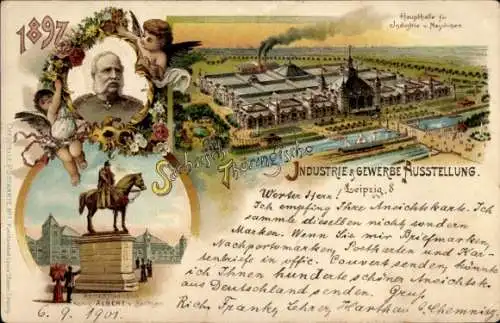 1897
Haupthalle für
Industrie u. Maschinen
Sächsisch Thüringische
INDUSTRIE & GEWERBE AUSSTELLUNG.
Leipzig.
ALBERT v. Sachsen
Werter Herr!
Ich empfing Ihre Ansichtskarte. Ich
sammle dieselben nicht sondern
Marken. Wenn Sie mir Briefmarken,
Nachportomarken, Postkarten und Kar-
tenbriefe in offic. Couvert senden, könnte
ich Ihnen hunderte schöner Ansichtsk.
aus Deutschland senden. Gruß
Rich. Franky Lehrer, Harthau b/Chemnitz
6. 9. 1901.